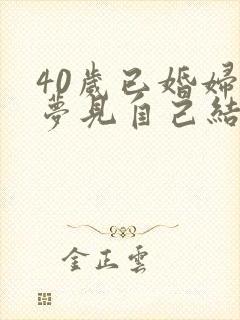 40歲已婚婦
夢見自己結
金正雲